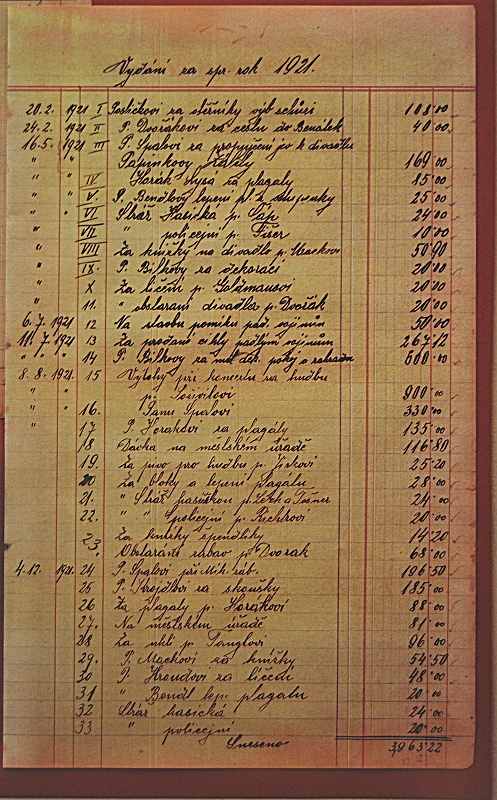 Vydání za spr. rok 1921.
20.2. 1921 I Posličkovi za stěrníky výb. schůzi 108·00
24.2. 1921 II P. Dvořákovi za cestu do Benátek 40·00
16.5. 1921 III P. Špalovi za propůjčení k divadlu
" " 169·00
" " IV Horák Lysá za plagáty 85·00
" V. P. Bendlovy lepení pl. 25·00
" " VI Stráž Hasičká p. Čap 24·00
" VII " policejní p. Fišer 10·00
" VIII Za knížky na divadlo p. Mackovi 50·90
" IX. P. Bílkovy za dekoraci 20·00
" X Za líčení p. Goldmanovi 20·00
" 11. " obstarání divadla p. Dvořák 20·00
6.7. 1921 12 Na stavbu pomníku pad. vojínům 50·00
11.7. 1921 13 Za prodané cihly padlým vojínům 267·12
" " 14 P. Bílkovy za 600·00
8.8. 1921. 15 Výlohy při koncertu za hudbu
" " p. 900·00
" " 16. Panu Špalovi 330·00
" 17 P. Horákovi za plagáty 135·00
18 Dávka na městském úřadě 116·80
19. Za pivo pro hudbu p. 25·20
20 Za bloky a lepení plagátů 28·00
21. " Stráž 24·00
22. " " Policejní p. Richtrovi 20·00
23. Za knížky špendlíky 14·20
" Obstarání zábav p. Dvořák 68·00
4.12. 1921. 24 P. Špalovi při Mik. záb. 196·50
25 P. za zkoušky 185·00
26 Za plagáty p. Horákovi 88·00
27. Na městském úřadě 81·00
28 Za uhlí p. Tanglovi 96·00
29. P. Mackovi za knížky 54·50
30 P. Hrondovi za líčení 48·00
31 " Bendl lep. plagátu 20·00
32 Stráž hasická 24·00
33 " policejní 20·00
Sneseno 3,963·22